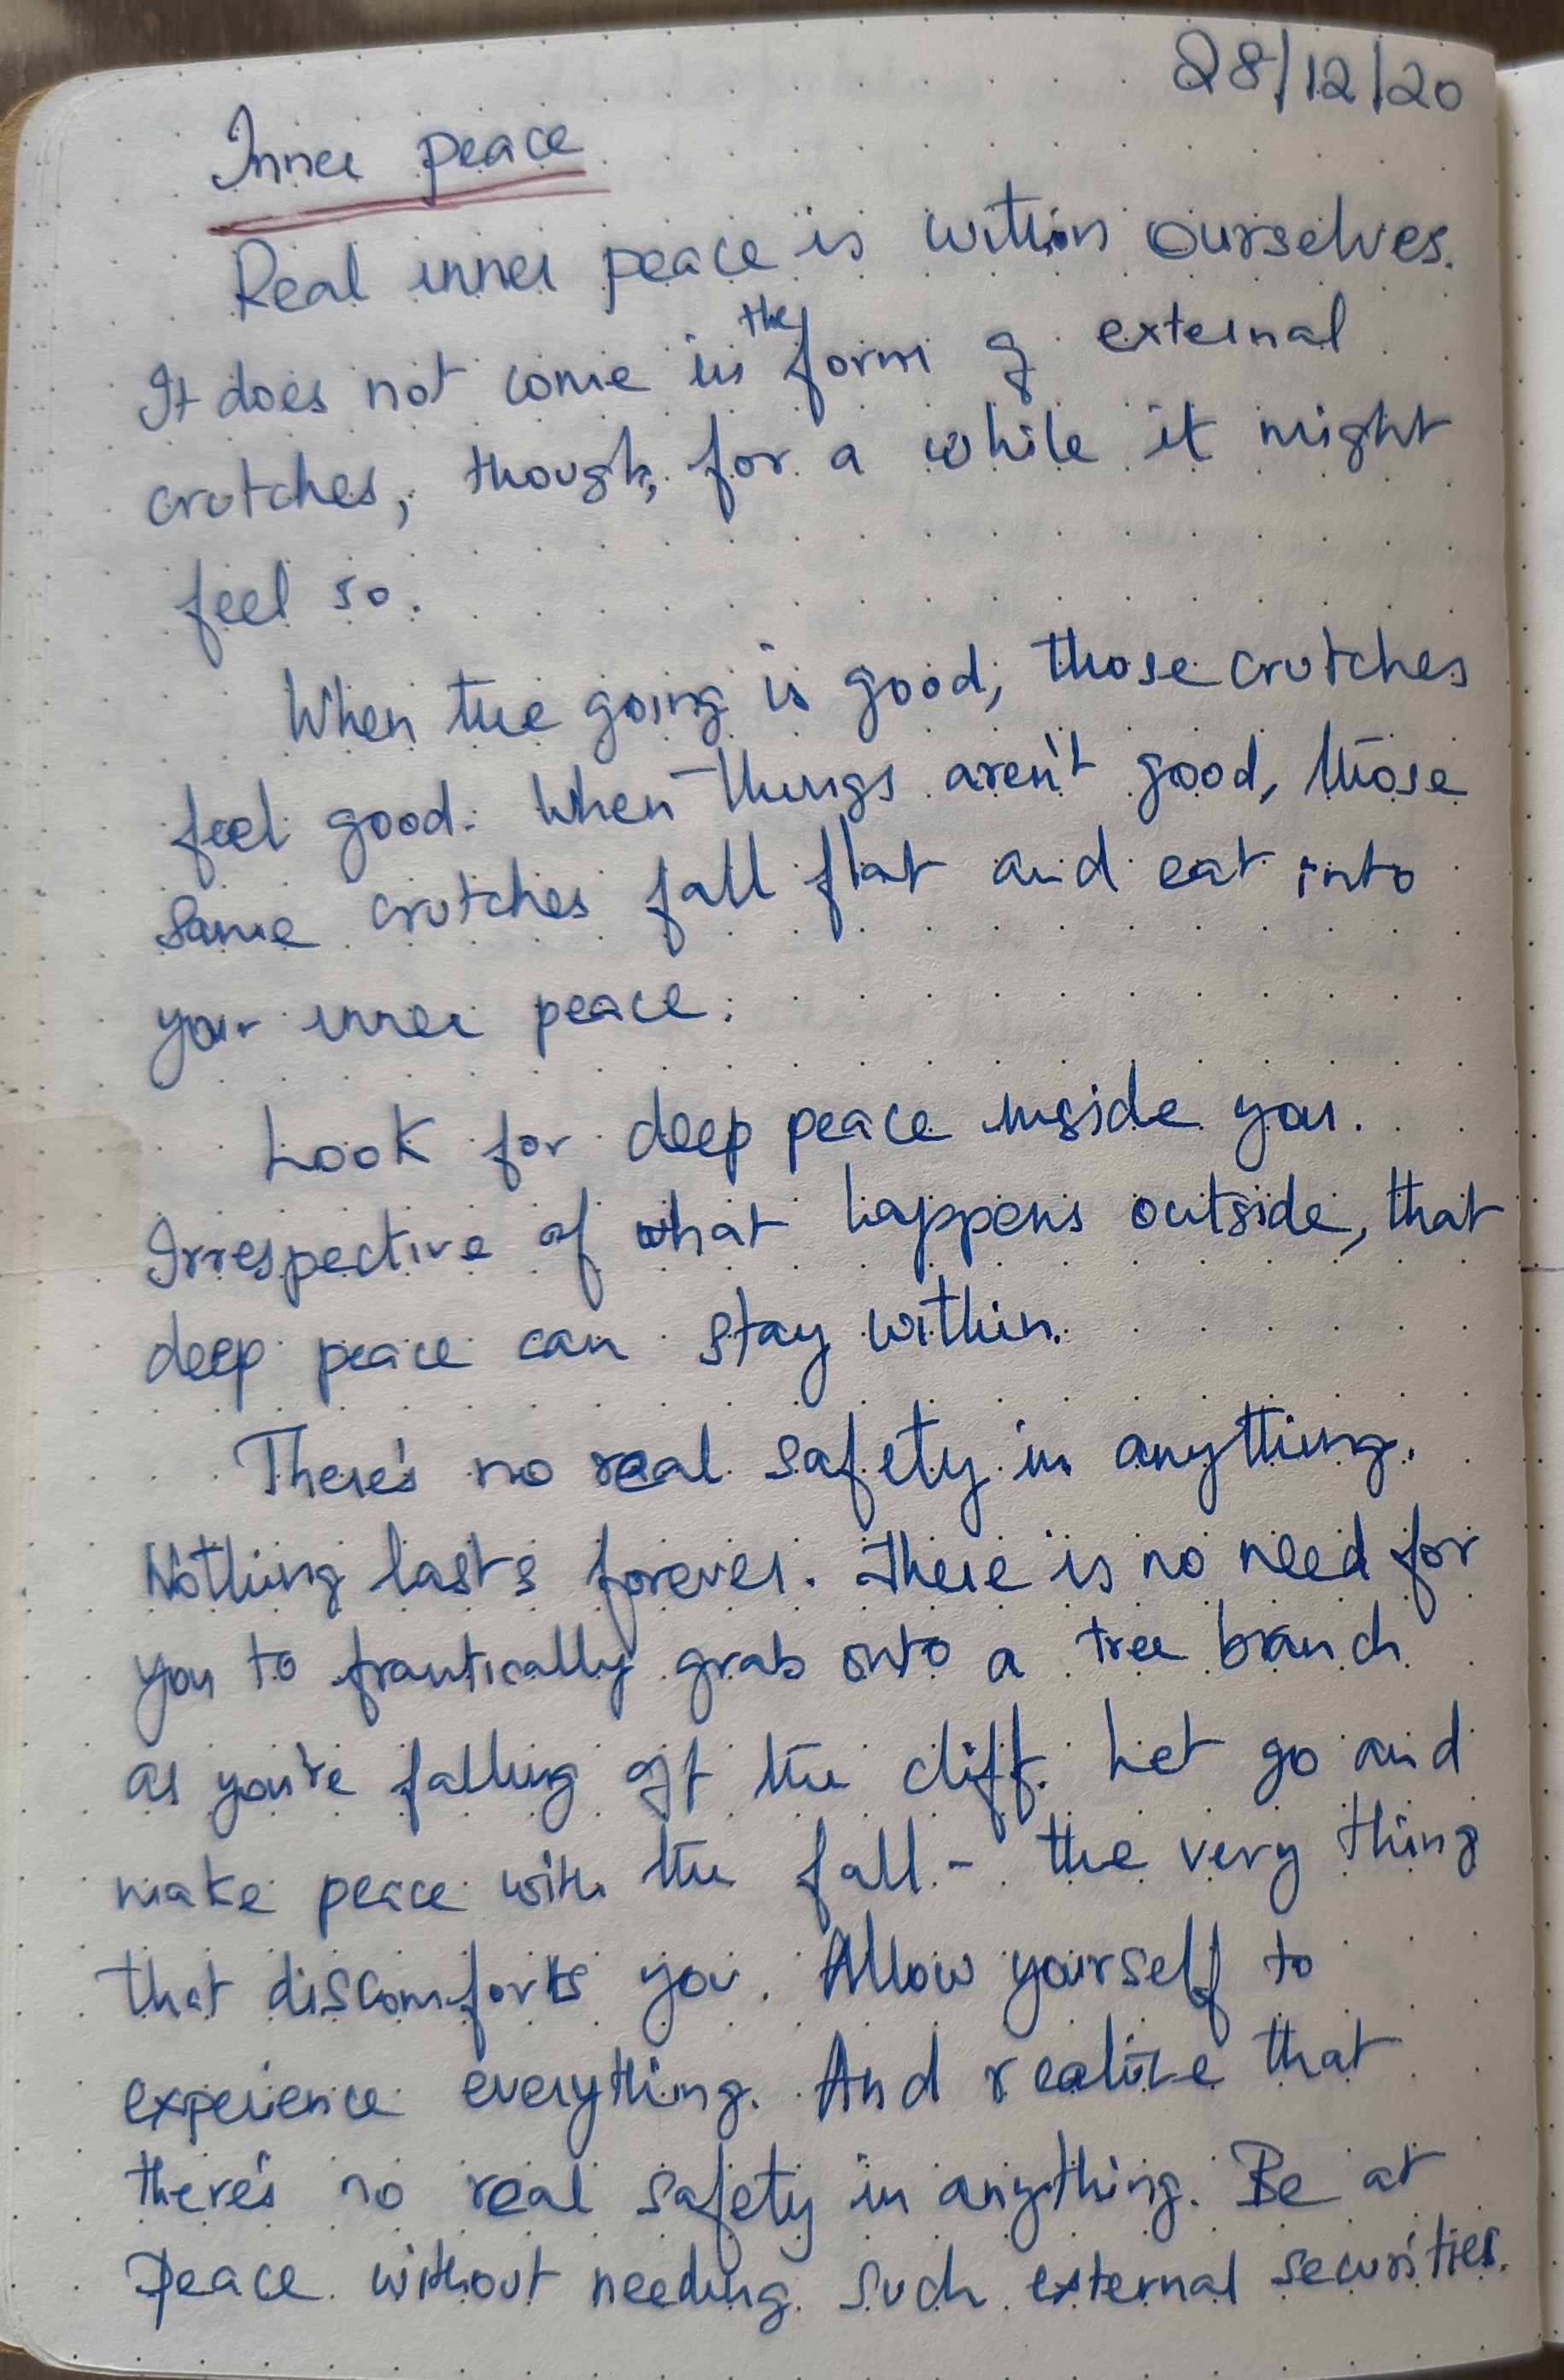 28/12/20
Inner peace
Real inner peace is within ourselves.
It does not come in the form of external
crutches, though, for a while it might
feel so.
When the going is good, those crutches
feel good. When things aren't good, those
same crutches fall flat and eat into
your inner peace.
Look for deep peace inside you.
Irrespective of what happens outside, that
deep peace can stay within.
There's no real safety in anything.
Nothing lasts forever. There is no need for
you to frantically grab onto a tree branch
as you're falling off the cliff. Let go and
make peace with the fall - the very thing
that discomforts you. Allow yourself to
experience everything. And realize that
there's no real safety in anything. Be at
peace without needing such external securities.